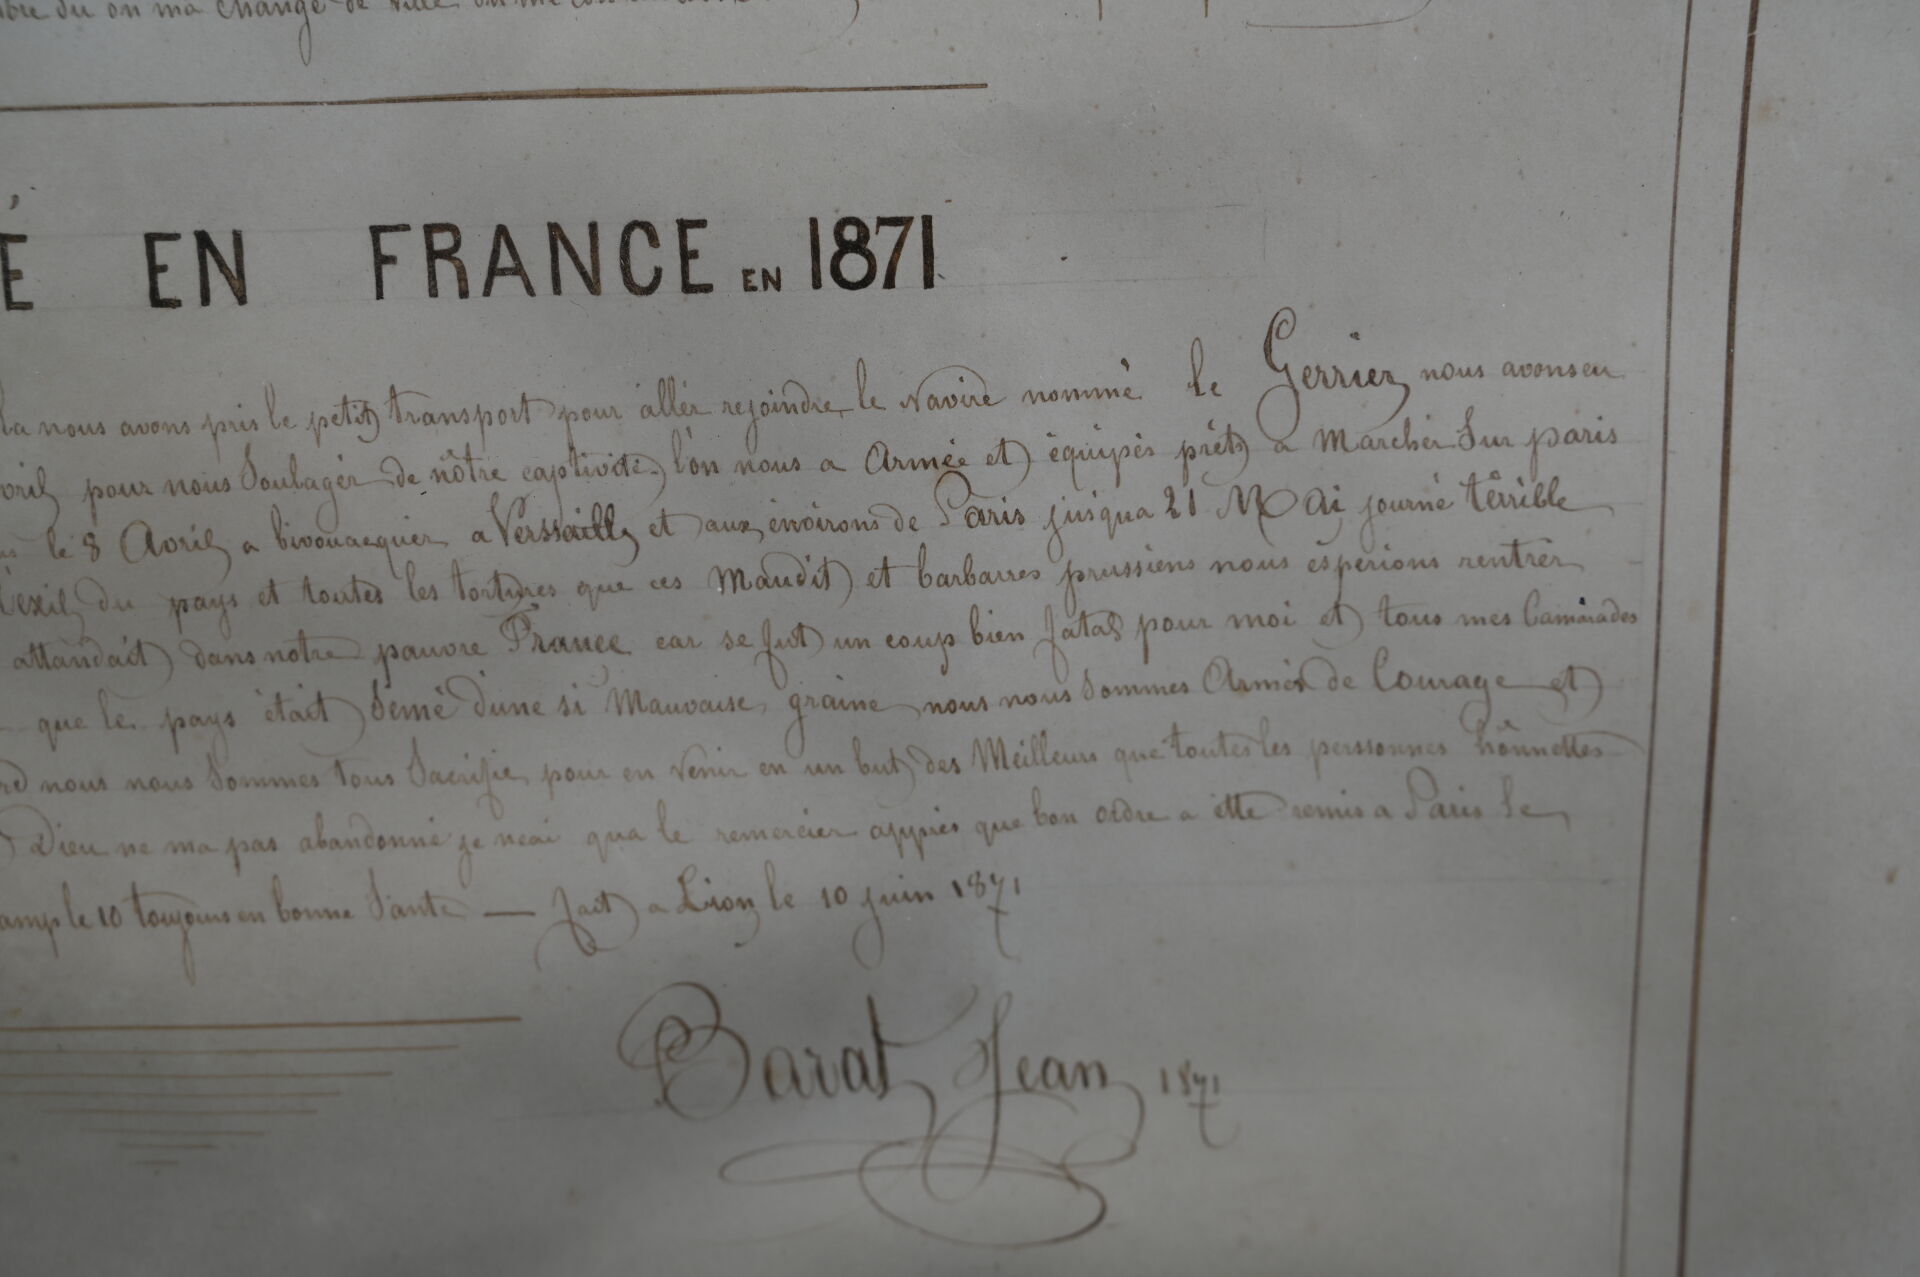 on ma changé de ville on me
É EN FRANCE EN 1871
la nous avons pris le petit transport pour allér rejoindre le Navire nommé le Gerrier nous avons eu
pour nous Soulagér de nôtre captivité l'on nous a Armée et équipés prêts a Marchér Sur paris
le 8 Avril a bivouacquier a Verssaille et aux énvirons de Paris jusqua 21 Mai journé térrible
l'éxil du pays et toutes les tortures que ces Maudit et barbarres prussiens nous éspérions rentrér
attandait dans notre pauvre France car se fut un coup bien fatal pour moi et tous mes Camarades
que le pays était Semé d'une si Mauvaise graine nous nous Sommes Armés de Courage et
nous nous Sommes tous Sacrifie pour en venir en un but des Meilleurs que toutes les perssonnes hônnettes
Dieu ne ma pas abandonné je neai qua le remercier apprés que bon ordre a étte remis a Paris le
camp le 10 toujours en bonne Santé — fait a Lion le 10 juin 1871
Barat Jean 1871